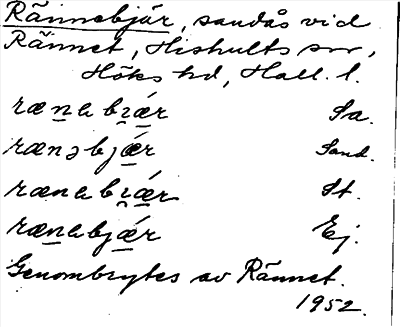 Rännebjär, sandås vid
Rännet, Hishults sn,
Höks hd, Hall. l.
ræna bɪǽr Sa.
rænəbjǽr Sand.
ræna bɪǽr St.
rænabjǽr Ej.
Genombrytes av Rännet.
1952.